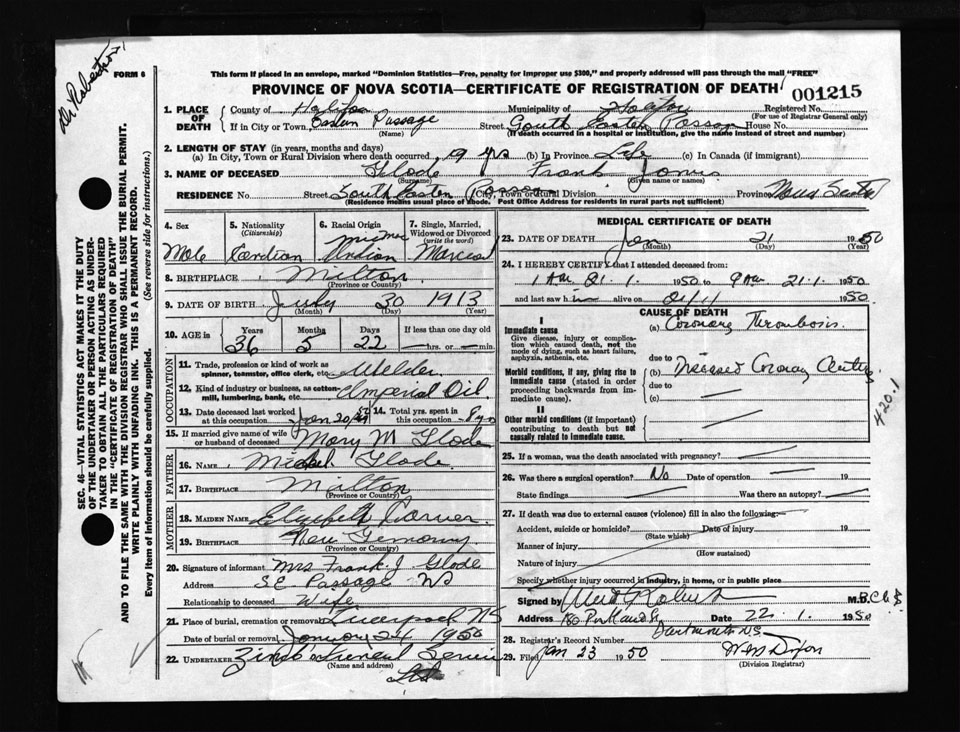 Dr Robertson
FORM 6
This form if placed in an envelope, marked "Dominion Statistics—Free, penalty for improper use $300," and properly addressed will pass through the mail "FREE"
PROVINCE OF NOVA SCOTIA—CERTIFICATE OF REGISTRATION OF DEATH
001215
SEC. 46—VITAL STATISTICS ACT MAKES IT THE DUTY
OF THE UNDERTAKER OR PERSON ACTING AS UNDER-
TAKER TO OBTAIN ALL THE PARTICULARS REQUIRED
IN THE "CERTIFICATE OF REGISTRATION OF DEATH"
AND TO FILE THE SAME WITH THE DIVISION REGISTRAR WHO SHALL ISSUE THE BURIAL PERMIT.
WRITE PLAINLY WITH UNFADING INK. THIS IS A PERMANENT RECORD.
Every item of information should be carefully supplied. (See reverse side for instructions.)
1. PLACE OF DEATH County of Halifax Municipality of Halifax Registered No.
(For use of Registrar General only)
If in City or Town Eastern Passage Street South Eastern Passage House No.
(Name) (If death occurred in a hospital or institution, give the name instead of street and number)
2. LENGTH OF STAY (in years, months and days)
(a) In City, Town or Rural Division where death occurred 19 yrs (b) In Province Life (c) In Canada (if immigrant)
3. NAME OF DECEASED Glode Frank James
(Surname) (Given name or names)
RESIDENCE No. Street South Eastern Passage City, Town or Rural Division Province Nova Scotia
(Residence means usual place of abode. Post Office Address for residents in rural parts not sufficient)
4. Sex 5. Nationality (Citizenship) 6. Racial Origin 7. Single, Married, Widowed or Divorced (write the word)
Male Canadian Micmac Indian Married
8. BIRTHPLACE Milton
(Province or Country)
9. DATE OF BIRTH July 30 1913
(Month) (Day) (Year)
10. AGE in Years Months Days If less than one day old
36 5 22 hrs. or min.
OCCUPATION
11. Trade, profession or kind of work as spinner, teamster, office clerk, etc. Welder
12. Kind of industry or business, as cotton-mill, lumbering, bank, etc. Imperial Oil
13. Date deceased last worked at this occupation Jan 20, 14. Total yrs. spent in this occupation 8 yrs
15. If married give name of wife or husband of deceased Mary M Glode
FATHER
16. NAME Michael Glode
17. BIRTHPLACE Milton
(Province or Country)
MOTHER
18. MAIDEN NAME Elizabeth
19. BIRTHPLACE New Germany
(Province or Country)
20. Signature of informant Mrs Frank J Glode
Address S E Passage NS
Relationship to deceased Wife
21. Place of burial, cremation or removal Liverpool NS
Date of burial or removal January 24 1950
22. UNDERTAKER Funeral Service
(Name and address)
Ltd
MEDICAL CERTIFICATE OF DEATH
23. DATE OF DEATH Jan 21 1950
(Month) (Day) (Year)
24. I HEREBY CERTIFY that I attended deceased from:
1 AM 21.1. 1950 to 9 AM 21.1. 1950
and last saw him alive on 1950
CAUSE OF DEATH
I
Immediate cause (a) Coronary Thrombosis.
Give disease, injury or complication which caused death, not the mode of dying, such as heart failure, asphyxia, asthenia, etc.
due to
Morbid conditions, if any, giving rise to immediate cause (stated in order proceeding backwards from immediate cause). (b) Diseased Coronary Arteries
due to
(c)
II
Other morbid conditions (if important) contributing to death but not causally related to immediate cause.
420.1
25. If a woman, was the death associated with pregnancy?
26. Was there a surgical operation? No Date of operation 19
State findings Was there an autopsy?
27. If death was due to external causes (violence) fill in also the following:
Accident, suicide or homicide? Date of injury 19
(State which)
Manner of injury
(How sustained)
Nature of injury
Specify whether injury occurred in industry, in home, or in public place
Signed by M.B. Ch.B.
Address 180 Portland St Date 22.1. 1950
Dartmouth N.S.
28. Registrar's Record Number
29. Filed Jan 23 1950 Dixon
(Division Registrar)